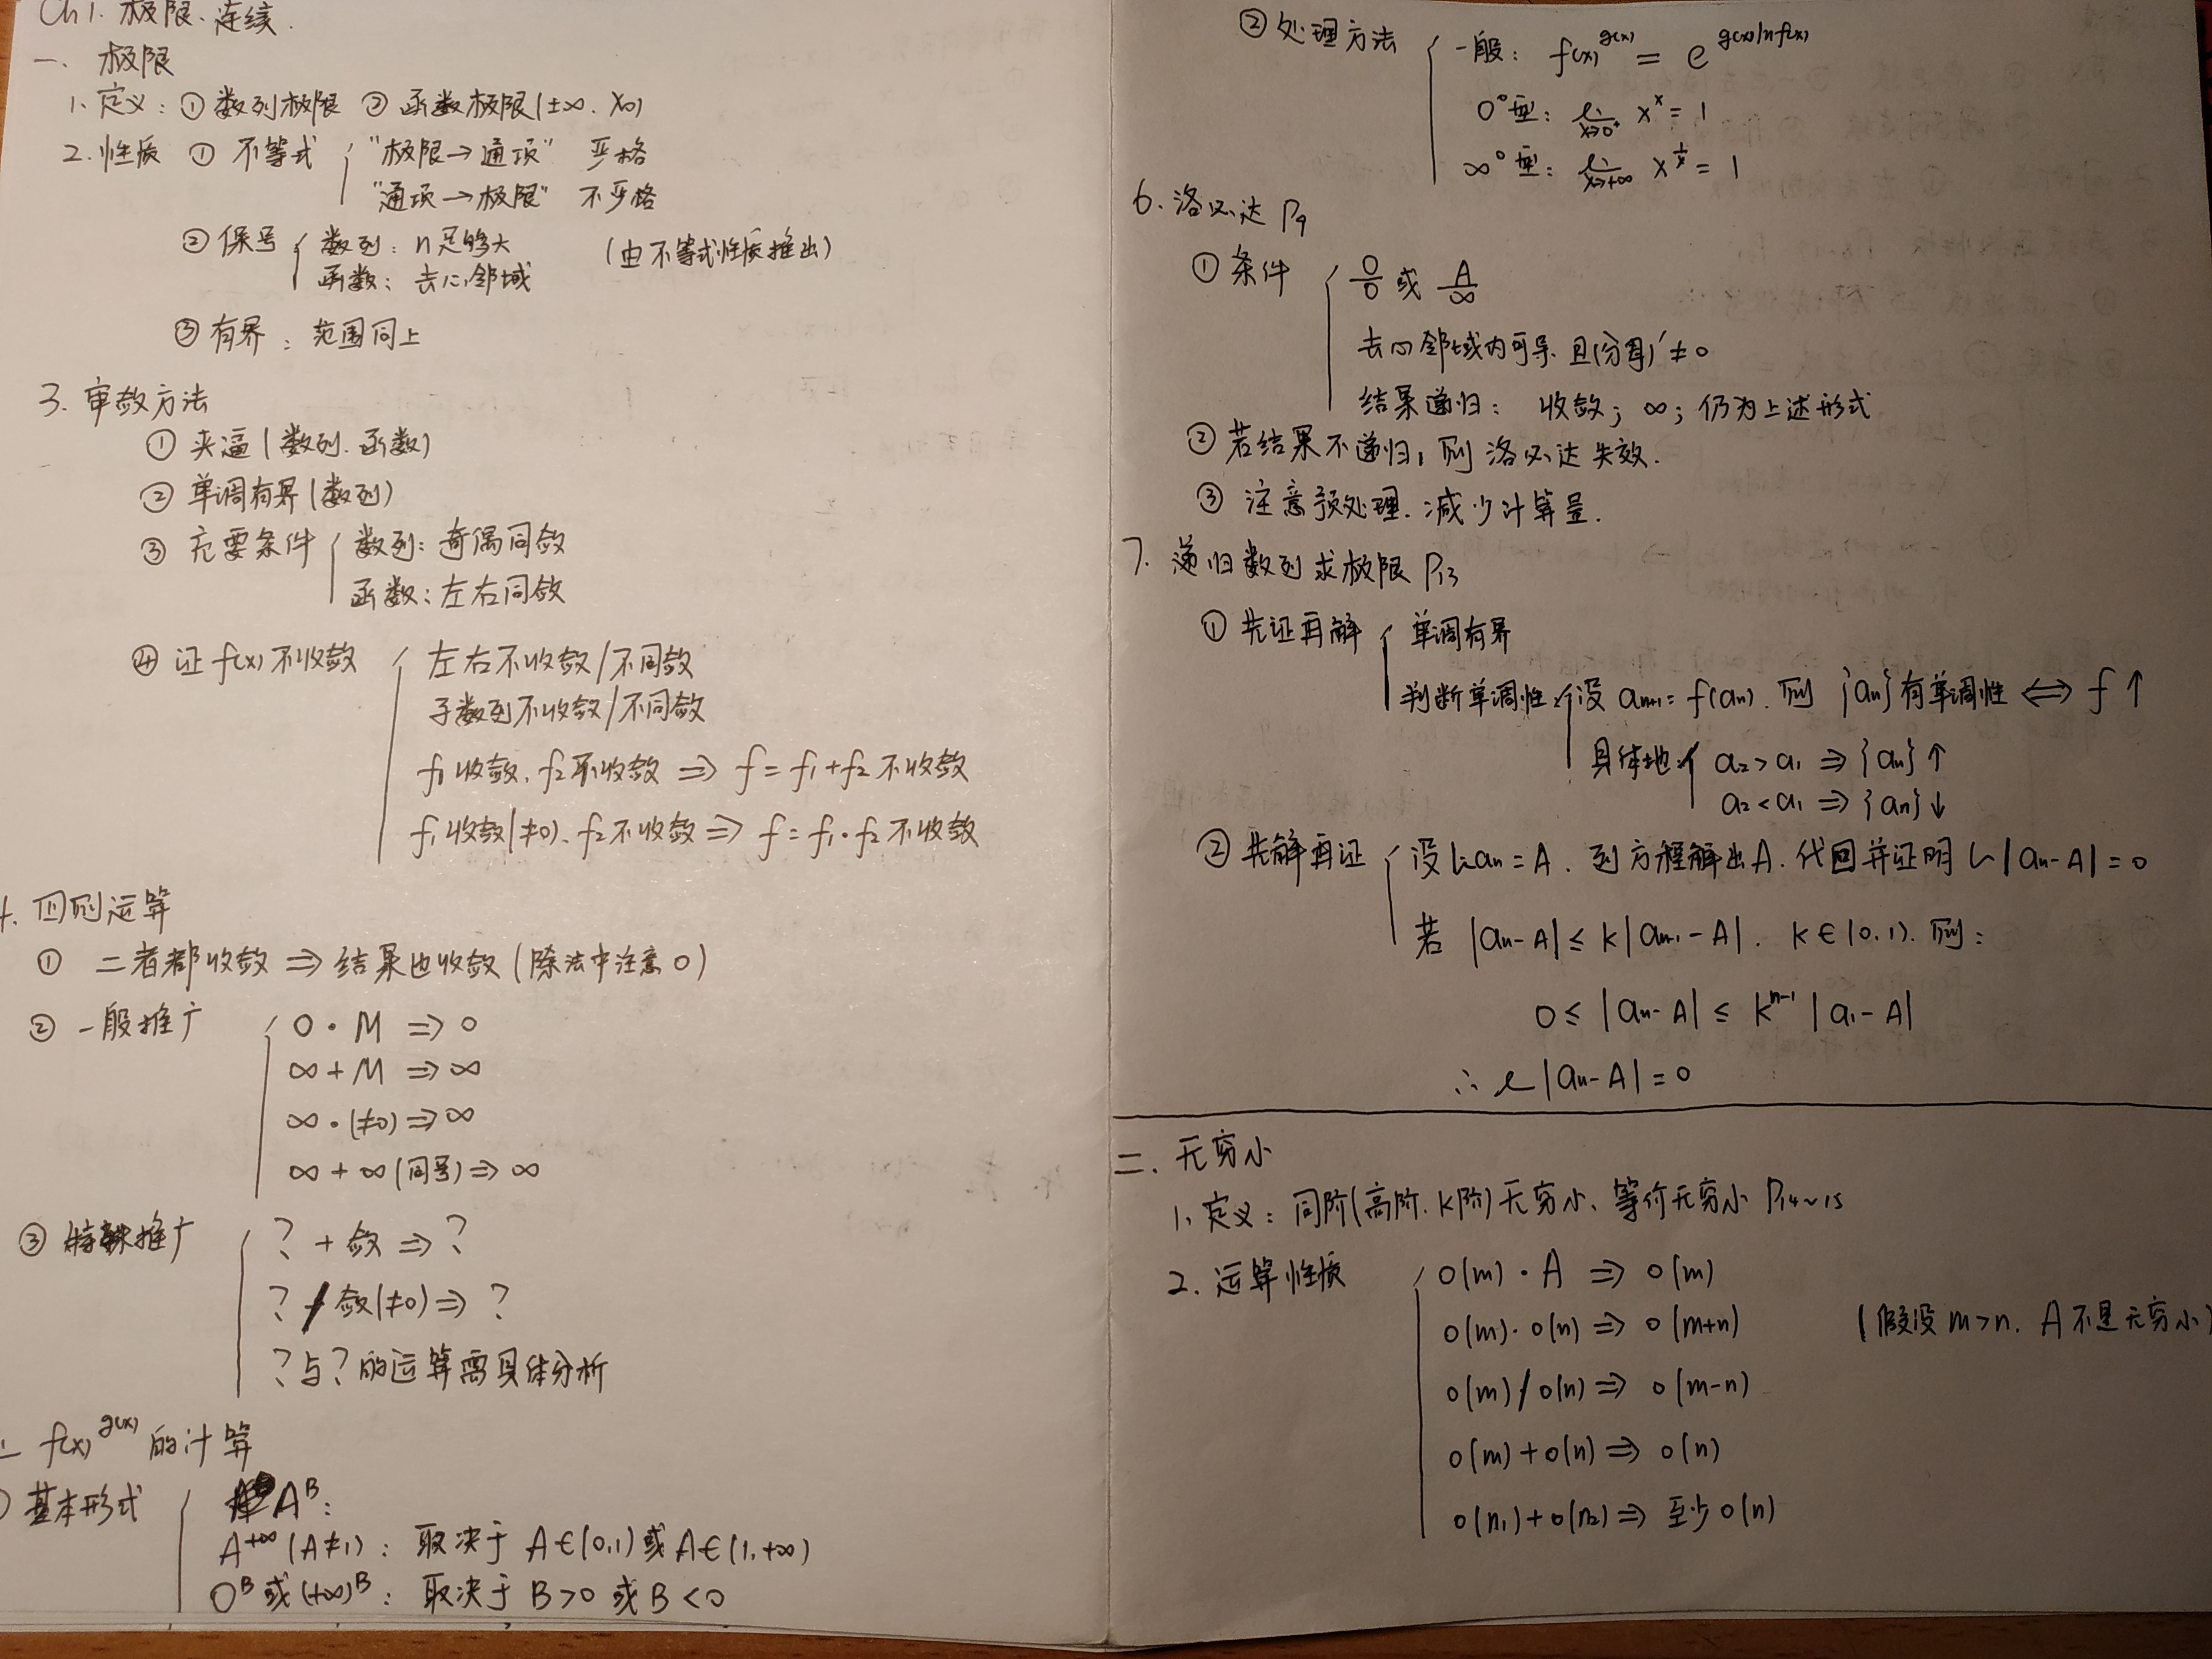 Ch1. 极限、连续.
一、极限
1、定义：① 数列极限 ② 函数极限(±∞、x₀)
2、性质 ① 不等式 { "极限→通项" 严格
"通项→极限" 不严格
② 保号 { 数列：n足够大 (由不等式性质推出)
函数：去心邻域
③ 有界：范围同上
3、审敛方法
① 夹逼(数列、函数)
② 单调有界(数列)
③ 充要条件 { 数列：奇偶同敛
函数：左右同敛
④ 证f(x)不收敛 { 左右不收敛/不同敛
子数列不收敛/不同敛
f₁收敛、f₂不收敛 ⇒ f = f₁+f₂ 不收敛
f₁收敛(≠0)、f₂不收敛 ⇒ f = f₁·f₂ 不收敛
4、四则运算
① 二者都收敛 ⇒ 结果也收敛(除法中注意0)
② 一般推广 { 0·M ⇒ 0
∞+M ⇒ ∞
∞·(≠0) ⇒ ∞
∞+∞(同号) ⇒ ∞
③ 特殊推广 { ? + 敛 ⇒ ?
? / 敛(≠0) ⇒ ?
?与?的运算需具体分析
f(x)^g(x) 的计算
基本形式 { A^B：
A^+∞ (A≠1)：取决于 A∈(0,1)或A∈(1,+∞)
0^B 或(+∞)^B：取决于 B>0 或B<0
② 处理方法 { 一般：f(x)^g(x) = e^g(x)lnf(x)
0⁰型：lim x→0⁺ x^x = 1
∞⁰型：lim x→+∞ x^(1/x) = 1
6、洛必达 P9
① 条件 { 0/0 或 A/∞
去心邻域内可导、且(分母)'≠0
结果递归：收敛；∞；仍为上述形式
② 若结果不递归，则洛必达失效.
③ 注意预处理、减少计算量.
7、递归数列求极限 P13
① 先证再解 { 单调有界
判断单调性 { 设 aₙ₊₁=f(aₙ)、则 {aₙ}有单调性 ⇔ f↑
具体地 { a₂>a₁ ⇒ {aₙ}↑
a₂<a₁ ⇒ {aₙ}↓
② 先解再证 { 设lim aₙ=A、列方程解出A、代回并证明 lim|aₙ-A|=0
若 |aₙ-A| ≤ k|aₙ₋₁-A|、k∈(0,1)、则：
0 ≤ |aₙ-A| ≤ k^(n-1) |a₁-A|
∴ lim |aₙ-A| = 0
二、无穷小
1、定义：同阶(高阶、k阶)无穷小、等价无穷小 P14~15
2、运算性质 { o(m)·A ⇒ o(m)
o(m)·o(n) ⇒ o(m+n) (假设m>n、A不是无穷小)
o(m)/o(n) ⇒ o(m-n)
o(m)+o(n) ⇒ o(n)
o(n₁)+o(n₂) ⇒ 至少o(n)